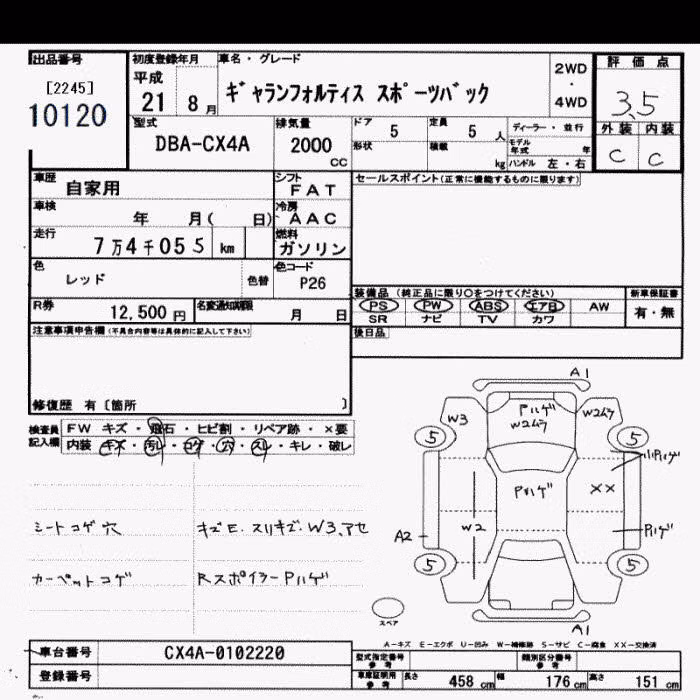 出品番号 初度登録年月 車名・グレード 評価点
[2245] 平成 2WD
10120 21 8月 ギャランフォルティス スポーツバック ・ 3.5
4WD
型式 排気量 ドア 5 定員 5人 ディーラー・並行 外装 内装
DBA-CX4A 2000CC 形状 積載 kg モデル年式 年 C C
ハンドル 左・右
車歴 自家用 シフト FAT セールスポイント(正常に機能するものに限ります)
車検 年 月( 日) 冷房 AAC
走行 7万4千055km 燃料 ガソリン
色 レッド 色替 色コード P26
装備品(純正品に限り○をつけてください) 新車保証書
R券 12,500円 名変通知期限 月 日 PS PW ABS エアB AW 有・無
SR ナビ TV カワ
注意事項申告欄(不具合内容等は具体的に記入して下さい) 後日品
修復歴 有〔箇所 〕
検査員記入欄 FW キズ・飛石・ヒビ割・リペア跡・×要
内装 キズ・汚レ・コゲ・穴・スレ・キレ・破レ
シートコゲ穴 キズE.スリキズ.W3、アセ
カーペットコゲ RスポイラーPハゲ
A1
Pハゲ
W2ムラ
W3 W2ムラ
5 5
小Pハゲ
Pハゲ ××
A2 W2 Pハゲ
5 5
スペア
A1
A-キズ E-エクボ U-凹み W-補修跡 S-サビ C-腐食 XX-交換済
車台番号 CX4A-0102220 型式指定番号 参考 類別区分番号 参考
登録番号 車庫証明用 参考 長さ 458cm 幅 176cm 高さ 151cm